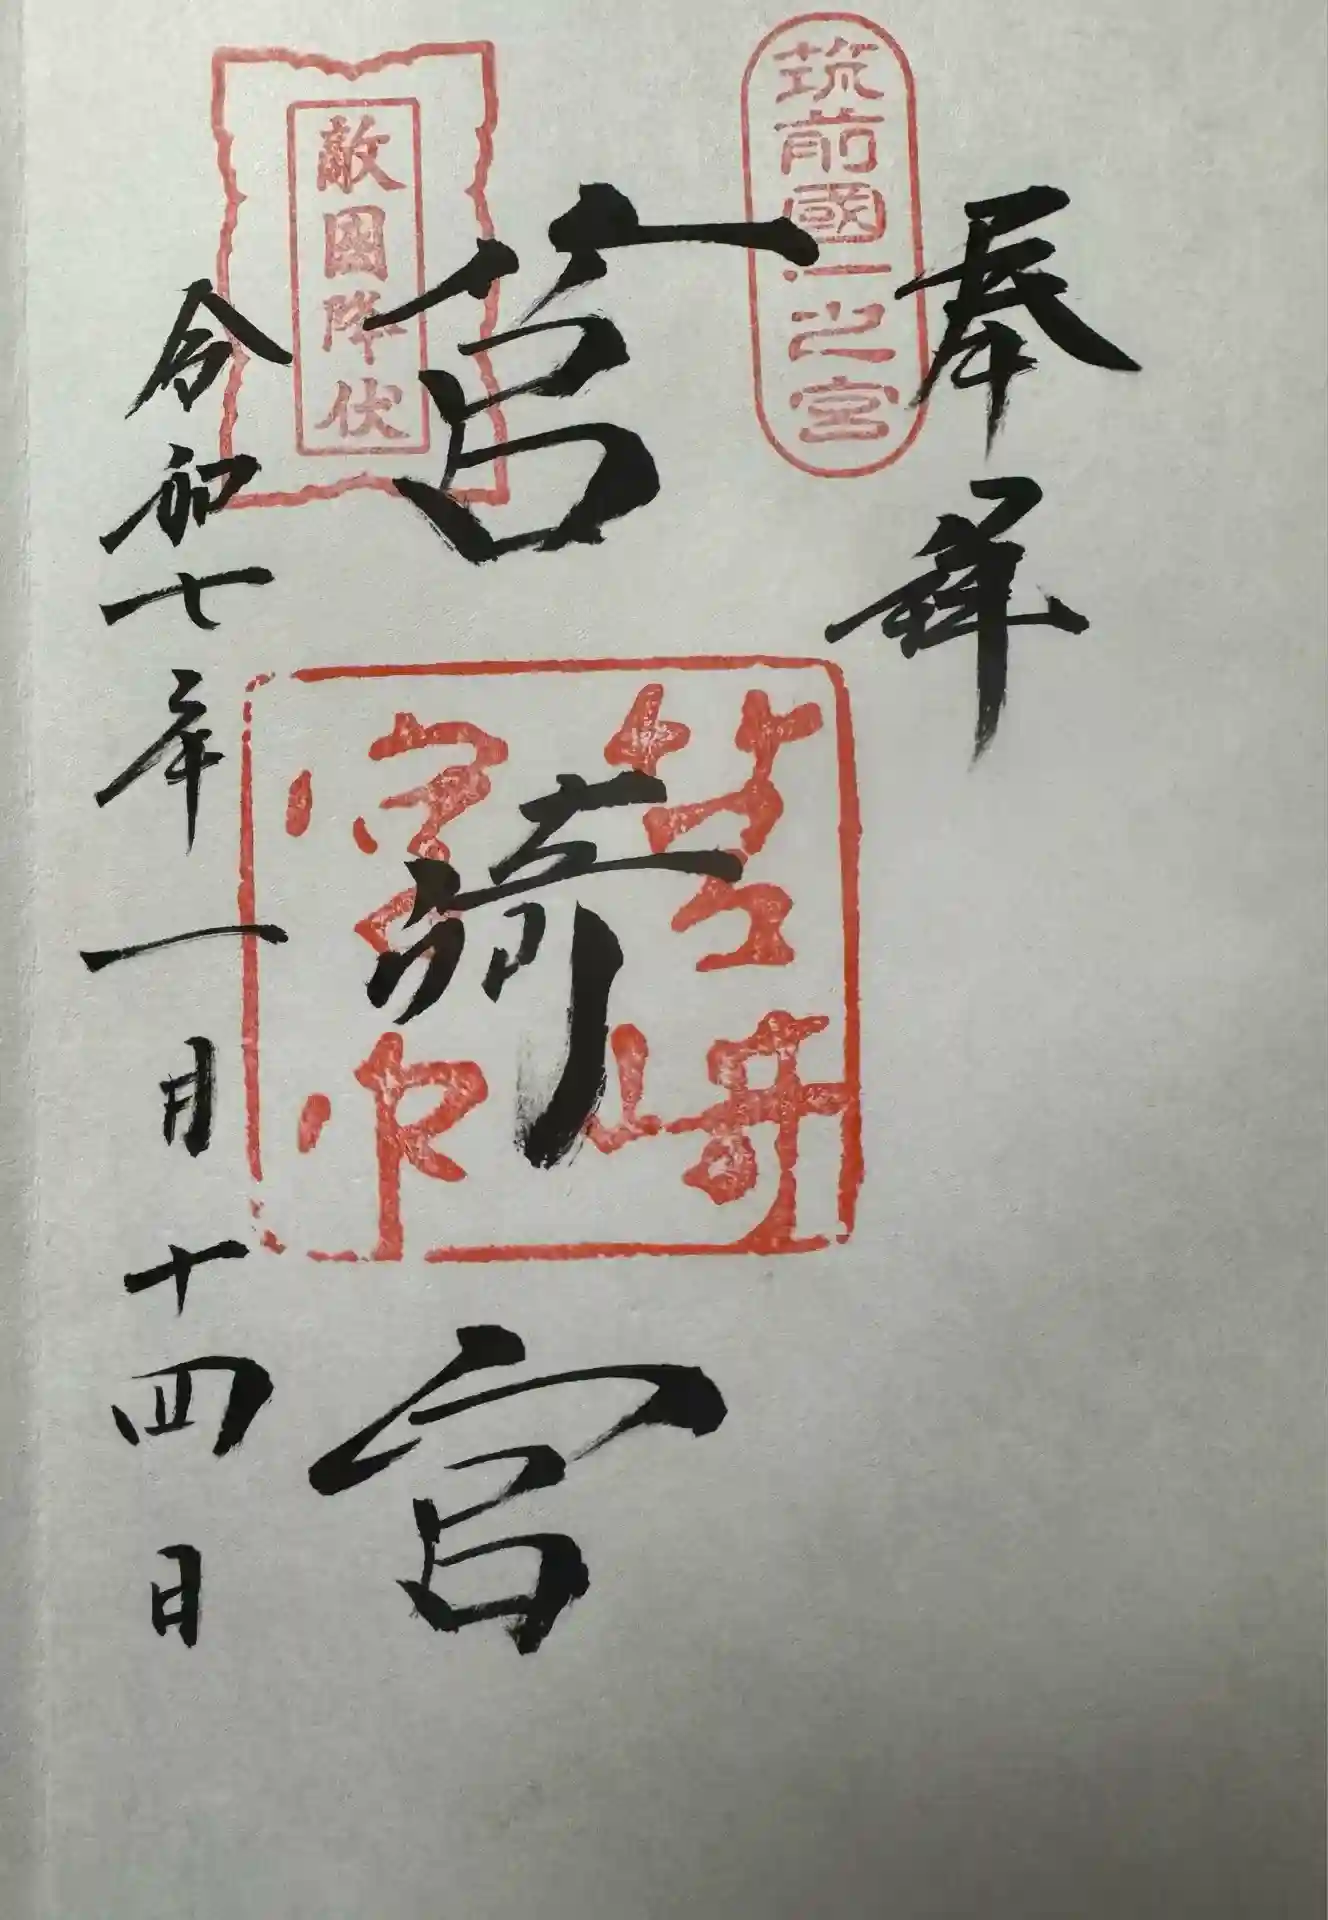 奉拝
筑前國一之宮
筥崎宮
敵國降伏
筥崎宮印
令和七年一月十四日